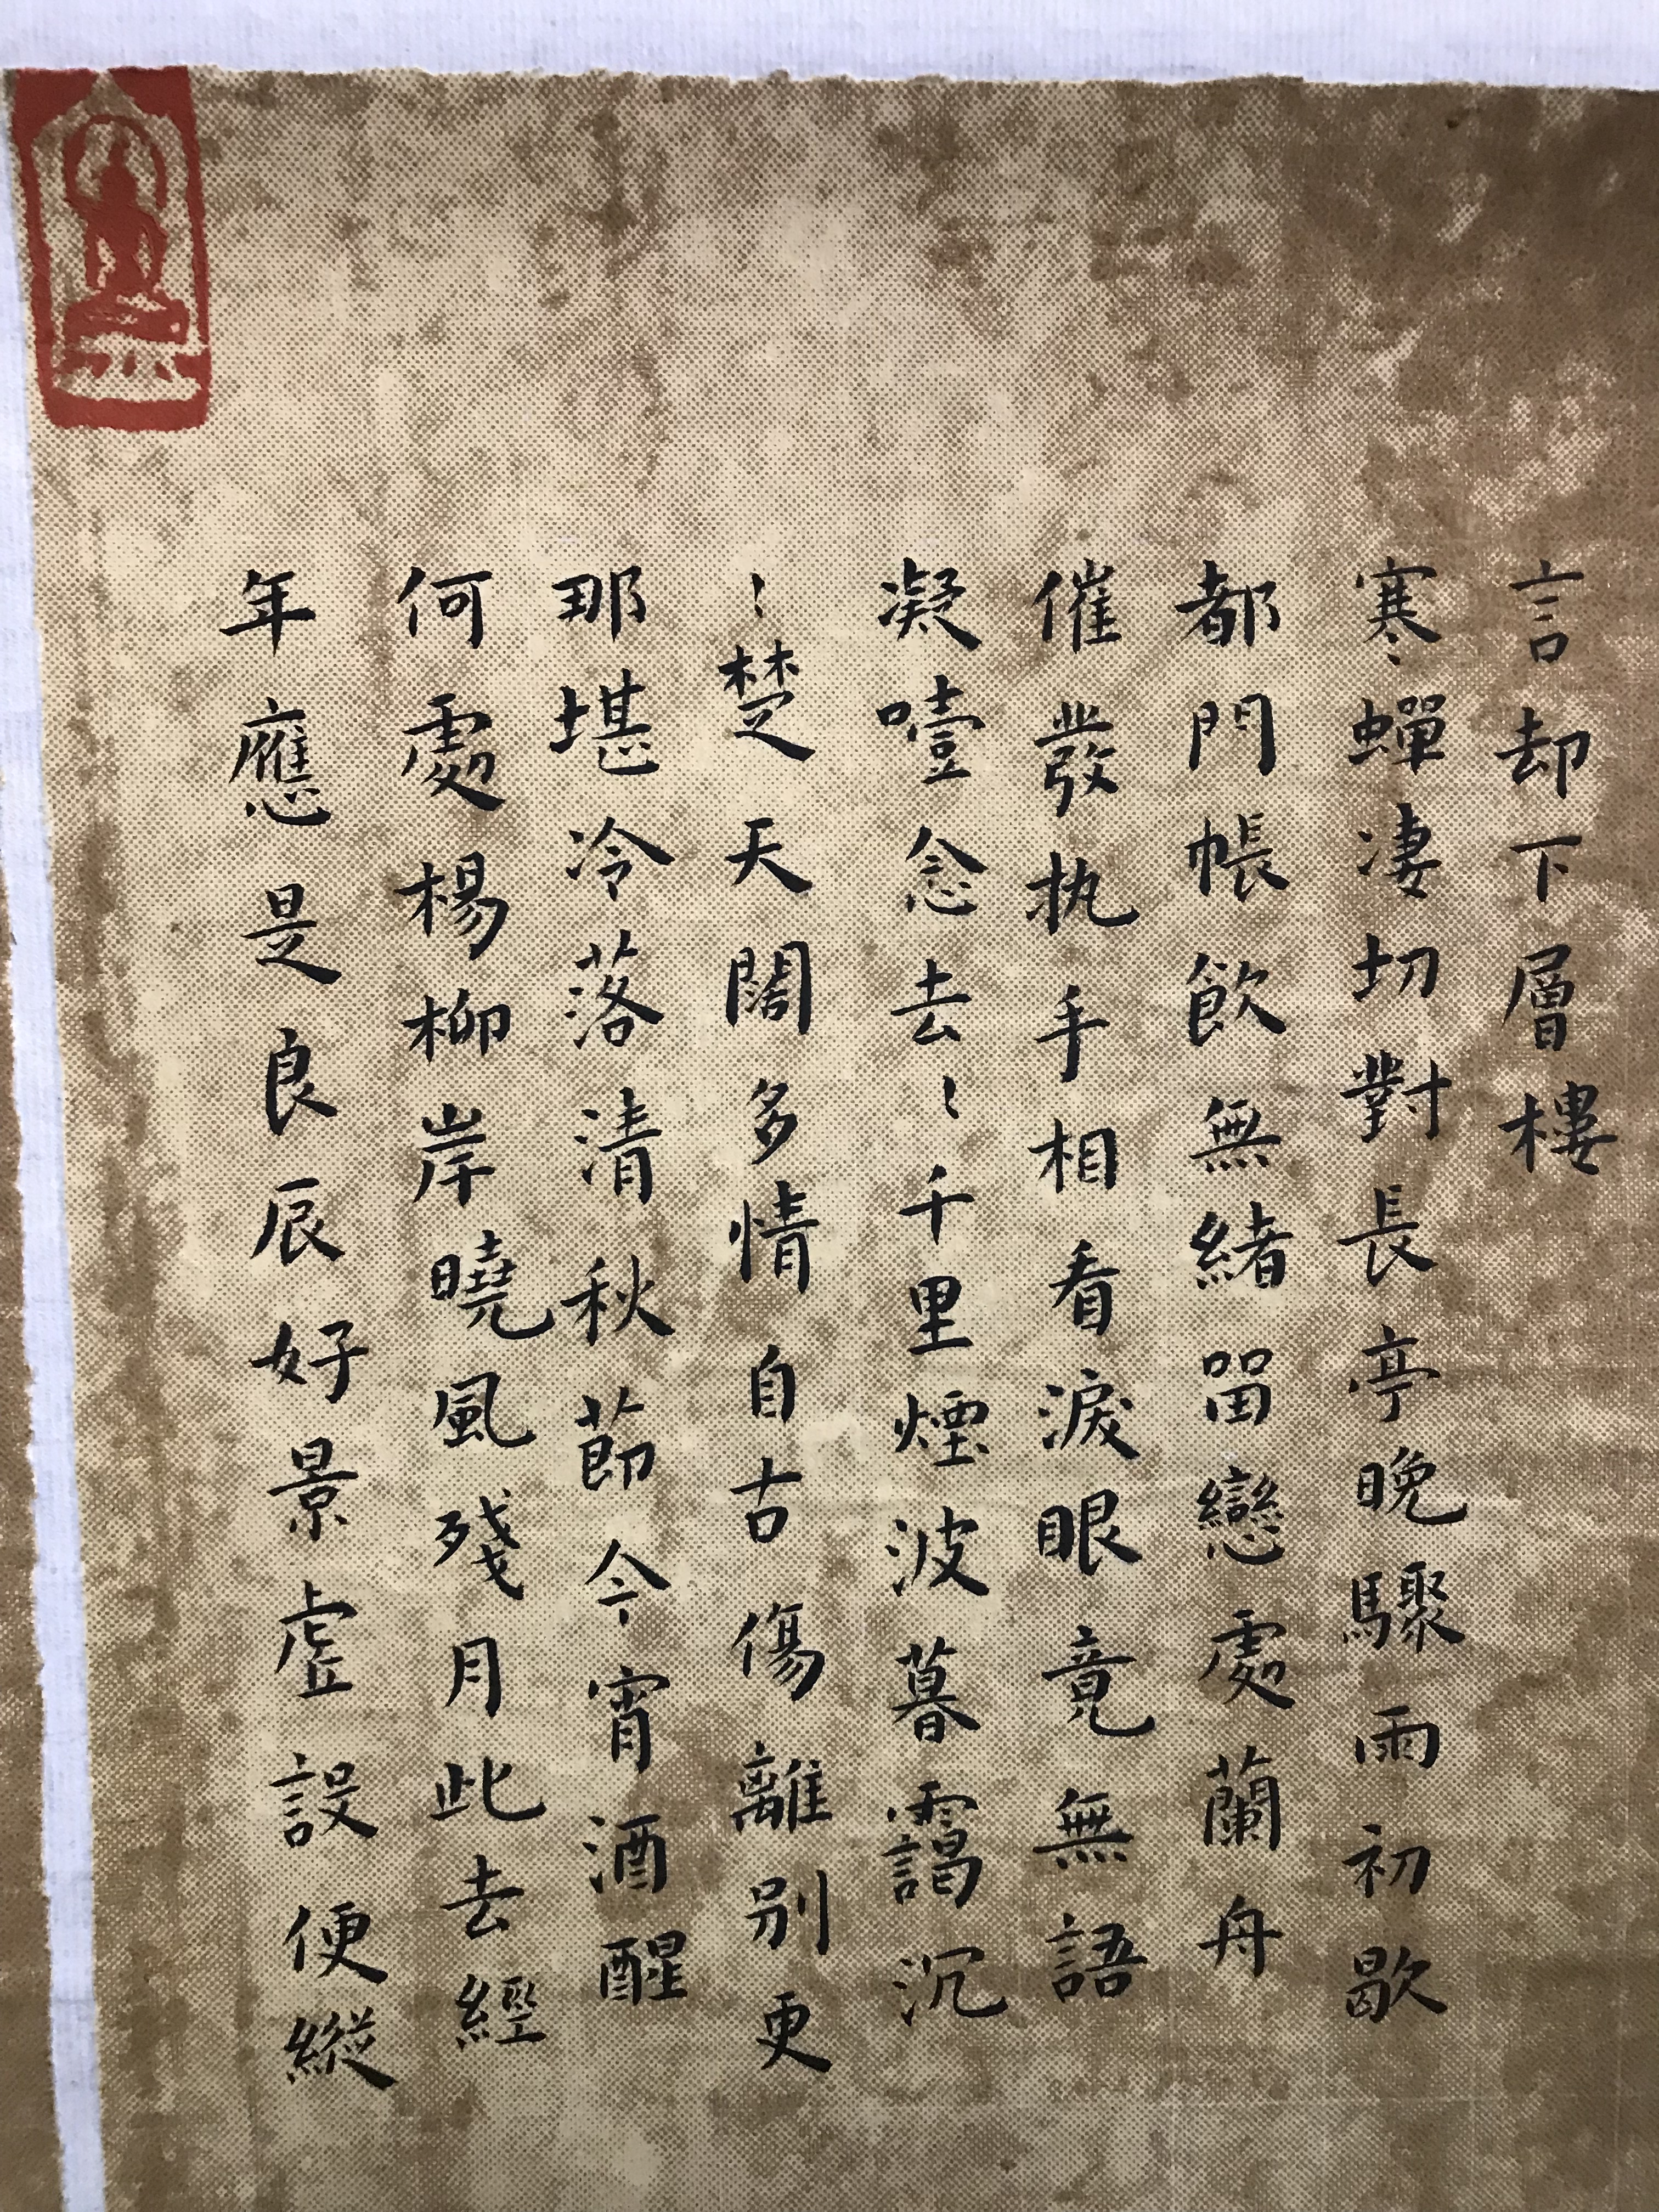 言却下層樓
寒蟬凄切對長亭晚驟雨初歇
都門帳飲無緒留戀處蘭舟
催發执手相看淚眼竟無語
凝噎念去〻千里煙波暮靄沉
〻楚天闊多情自古傷離別更
那堪冷落清秋節今宵酒醒
何處楊柳岸曉風殘月此去經
年應是良辰好景虛設便縱